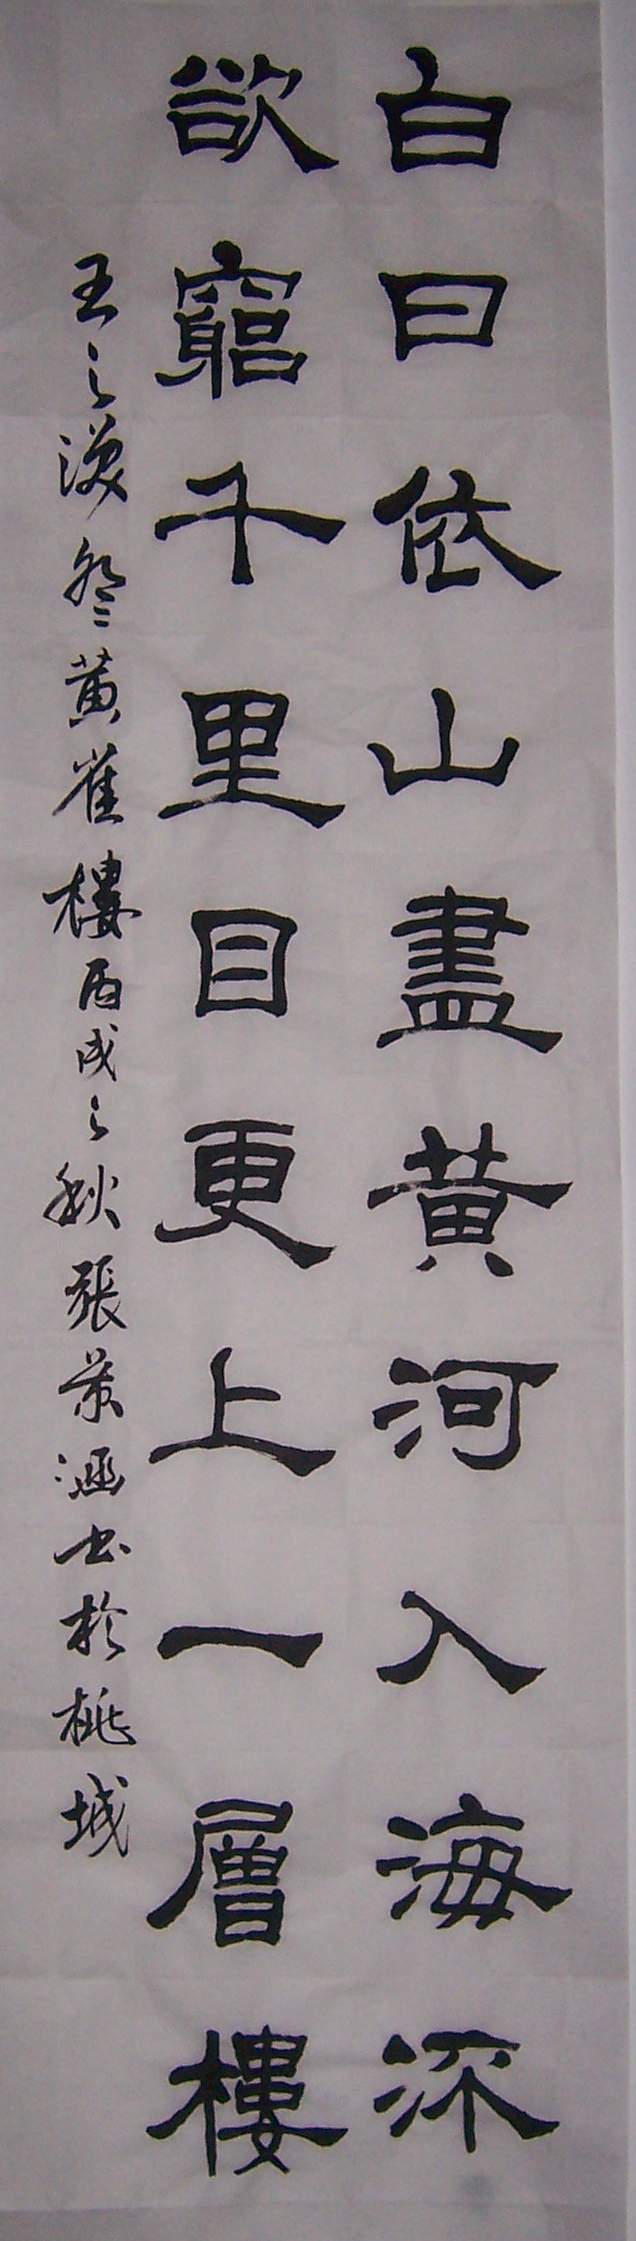 白日依山盡黄河入海流
欲窮千里目更上一層樓
王之渙登黄雀樓丙戌之秋張景涵书於桃城